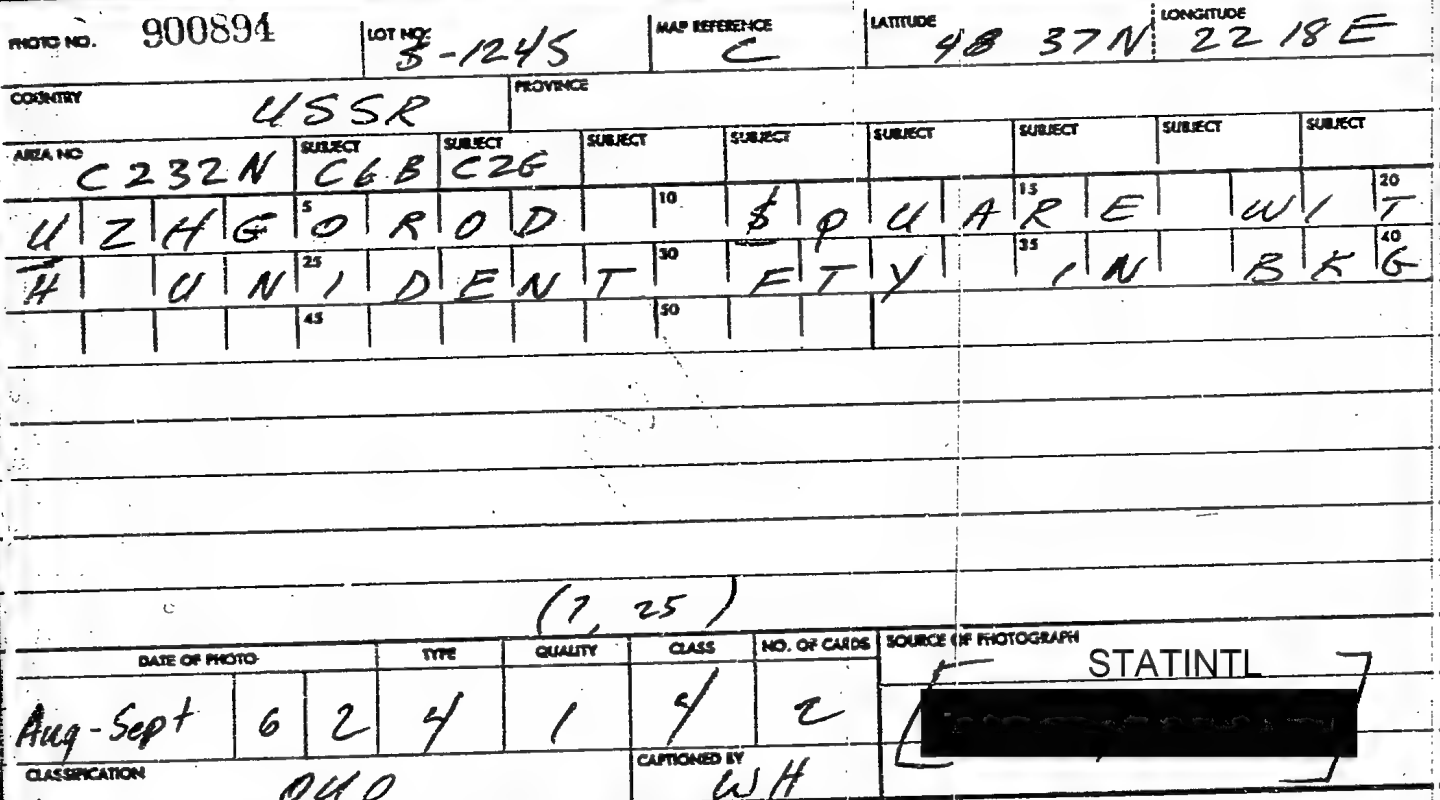 PHOTO NO. 900894 LOT NO. S-1245 MAP REFERENCE C LATITUDE 48 37N LONGITUDE 22 18E
COUNTRY USSR PROVINCE
AREA NO C232N SUBJECT C6B SUBJECT C2G SUBJECT SUBJECT SUBJECT SUBJECT SUBJECT SUBJECT
UZHGOROD SQUARE WIT
5 10 15 20
H UNIDENT FTY IN BKG
25 30 35 40
45 50
(7, 25)
DATE OF PHOTO TYPE QUALITY CLASS NO. OF CARDS SOURCE OF PHOTOGRAPH
STATINTL
Aug-Sept 6 2 4 1 4 2
CLASSIFICATION OUO CAPTIONED BY WH